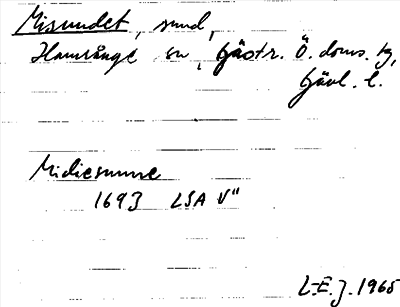 Misundet, sund,
Hamrånge sn, Gästr. Ö. doms. tg,
Gävl. l.
Midiesunne
1693 LSA V"
L-E.J. 1965